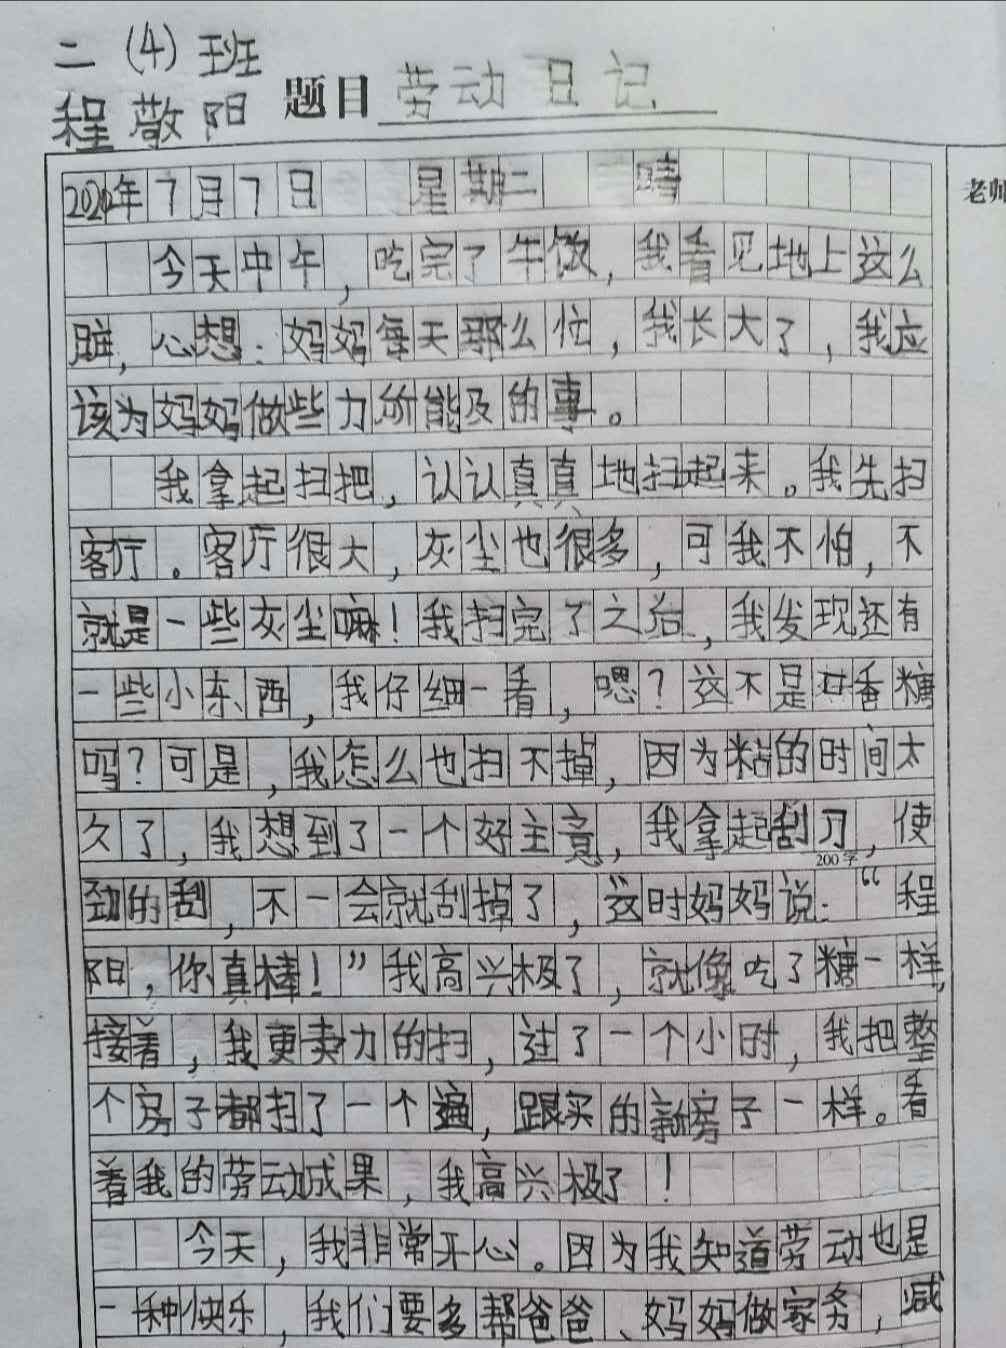 二（4）班
程敬阳
题目 劳动日记
老师
2020年7月7日 星期二 晴
今天中午，吃完了午饭，我看见地上这么
脏，心想：妈妈每天那么忙，我长大了，我应
该为妈妈做些力所能及的事。
我拿起扫把，认认真真地扫起来。我先扫
客厅。客厅很大，灰尘也很多，可我不怕，不
就是一些灰尘嘛！我扫完了之后，我发现还有
一些小东西，我仔细一看，嗯？这不是口香糖
吗？可是，我怎么也扫不掉，因为粘的时间太
久了，我想到了一个好主意，我拿起刮刀，使
200字
劲的刮，不一会就刮掉了，这时妈妈说：“程
阳，你真棒！”我高兴极了，就像吃了糖一样，
接着，我更卖力的扫，过了一个小时，我把整
个房子都扫了一个遍，跟买的新房子一样。看
着我的劳动成果，我高兴极了！
今天，我非常开心。因为我知道劳动也是
一种快乐，我们要多帮爸爸、妈妈做家务，减